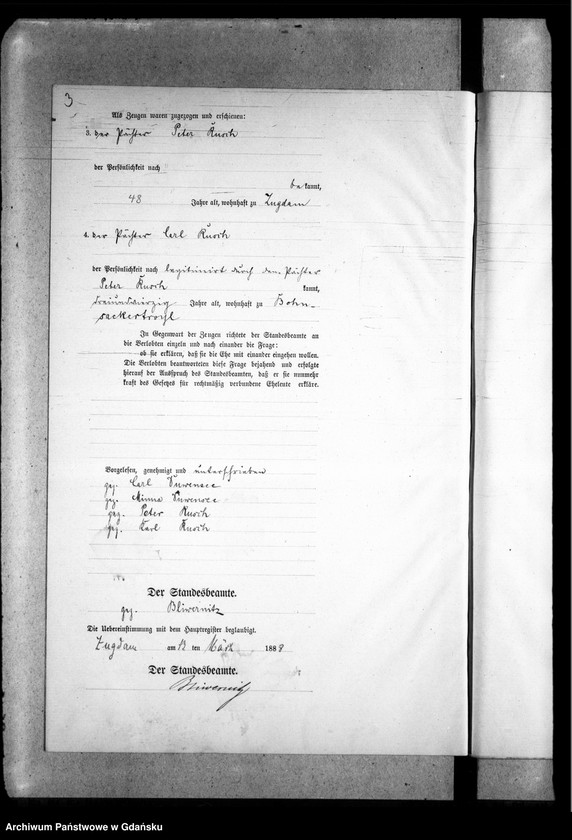 3
Als Zeugen waren zugezogen und erschienen:
3. der Pächter Peter Knoth
der Persönlichkeit nach
be kannt,
48 Jahre alt, wohnhaft zu Zugdam
4. der Pächter Carl Knoth
der Persönlichkeit nach legitimirt durch den Pächter
Peter Knoth kannt,
dreiundvierzig Jahre alt, wohnhaft zu Bohn-
sackertroyl
In Gegenwart der Zeugen richtete der Standesbeamte an
die Verlobten einzeln und nach einander die Frage:
ob sie erklären, daß sie die Ehe mit einander eingehen wollen.
Die Verlobten beantworteten diese Frage bejahend und erfolgte
hierauf der Ausspruch des Standesbeamten, daß er sie nunmehr
kraft des Gesetzes für rechtmäßig verbundene Eheleute erkläre.
Vorgelesen, genehmigt und unterschrieben
gez. Carl
gez. Minna
gez. Peter Knoth
gez. Karl Knoth
Der Standesbeamte.
gez. Bliwernitz
Die Uebereinstimmung mit dem Hauptregister beglaubigt.
Zugdam am 13 ten März 1888
Der Standesbeamte.
Bliwernitz
Archiwum Państwowe w Gdańsku